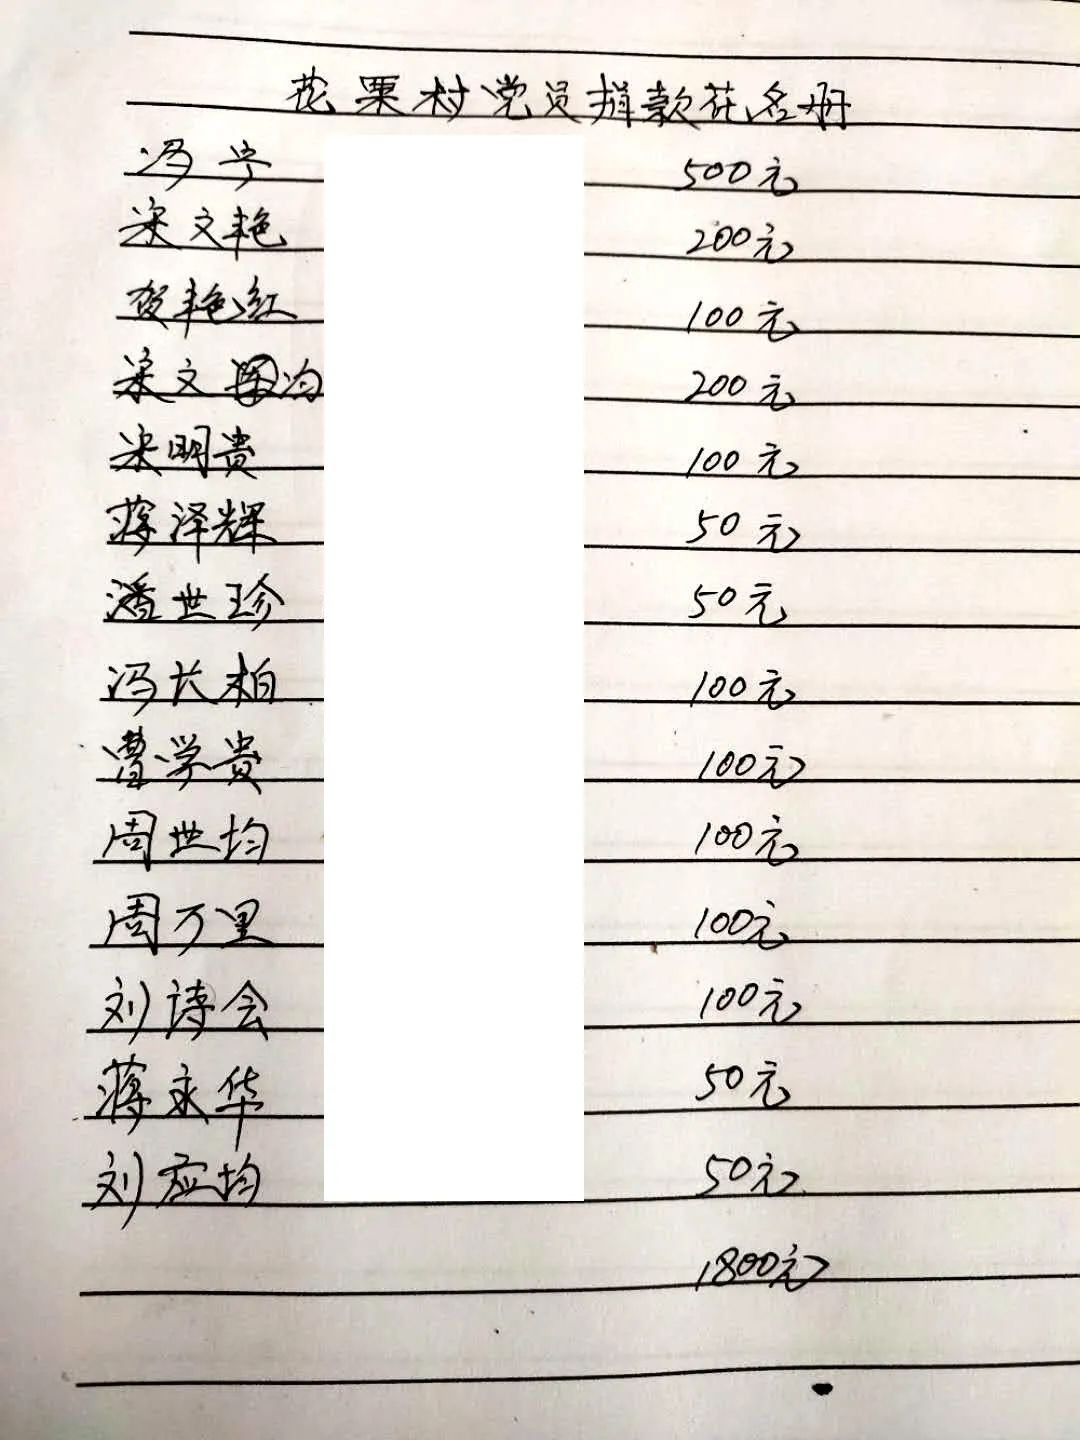 花栗村党员捐款花名册
冯宁 500元
梁文艳 200元
贺艳红 100元
梁文均 200元
梁明贵 100元
蒋泽辉 50元
潘世珍 50元
冯长柏 100元
曹学贵 100元
周世均 100元
周万里 100元
刘诗会 100元
蒋永华 50元
刘应均 50元
1800元